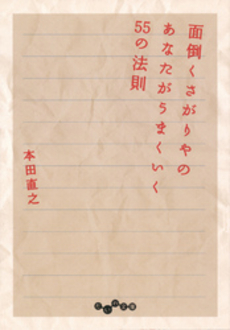 面倒くさがりやの
あなたがうまくいく
55の法則
本田直之
だいわ文庫